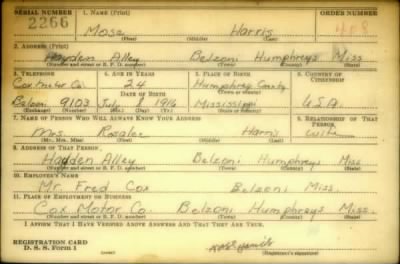 SERIAL NUMBER 1. NAME (Print) ORDER NUMBER
2266 Mose Harris
(First) (Middle) (Last)
2. ADDRESS (Print)
Hayden Alley Belzoni Humphreys Miss
(Number and street or R. F. D. number) (Town) (County) (State)
3. TELEPHONE 4. AGE IN YEARS 5. PLACE OF BIRTH 6. COUNTRY OF CITIZENSHIP
Cox Motor Co. 24 Humphrey County
DATE OF BIRTH
Belzoni 9103 July 8 1916 Mississippi U.S.A.
(Exchange) (Number) (Mo.) (Day) (Yr.) (State or country)
7. NAME OF PERSON WHO WILL ALWAYS KNOW YOUR ADDRESS 8. RELATIONSHIP OF THAT PERSON
Mrs. Rosalee Harris Wife
(Mr., Mrs., Miss) (First) (Middle) (Last)
9. ADDRESS OF THAT PERSON
Hadden Alley Belzoni Humphreys Miss
(Number and street or R. F. D. number) (Town) (County) (State)
10. EMPLOYER'S NAME
Mr. Fred Cox Belzoni Miss.
11. PLACE OF EMPLOYMENT OR BUSINESS
Cox Motor Co. Belzoni Humphreys Miss
(Number and street or R. F. D. number) (Town) (County) (State)
I AFFIRM THAT I HAVE VERIFIED ABOVE ANSWERS AND THAT THEY ARE TRUE.
REGISTRATION CARD
D. S. S. Form 1 (Registrant's signature)